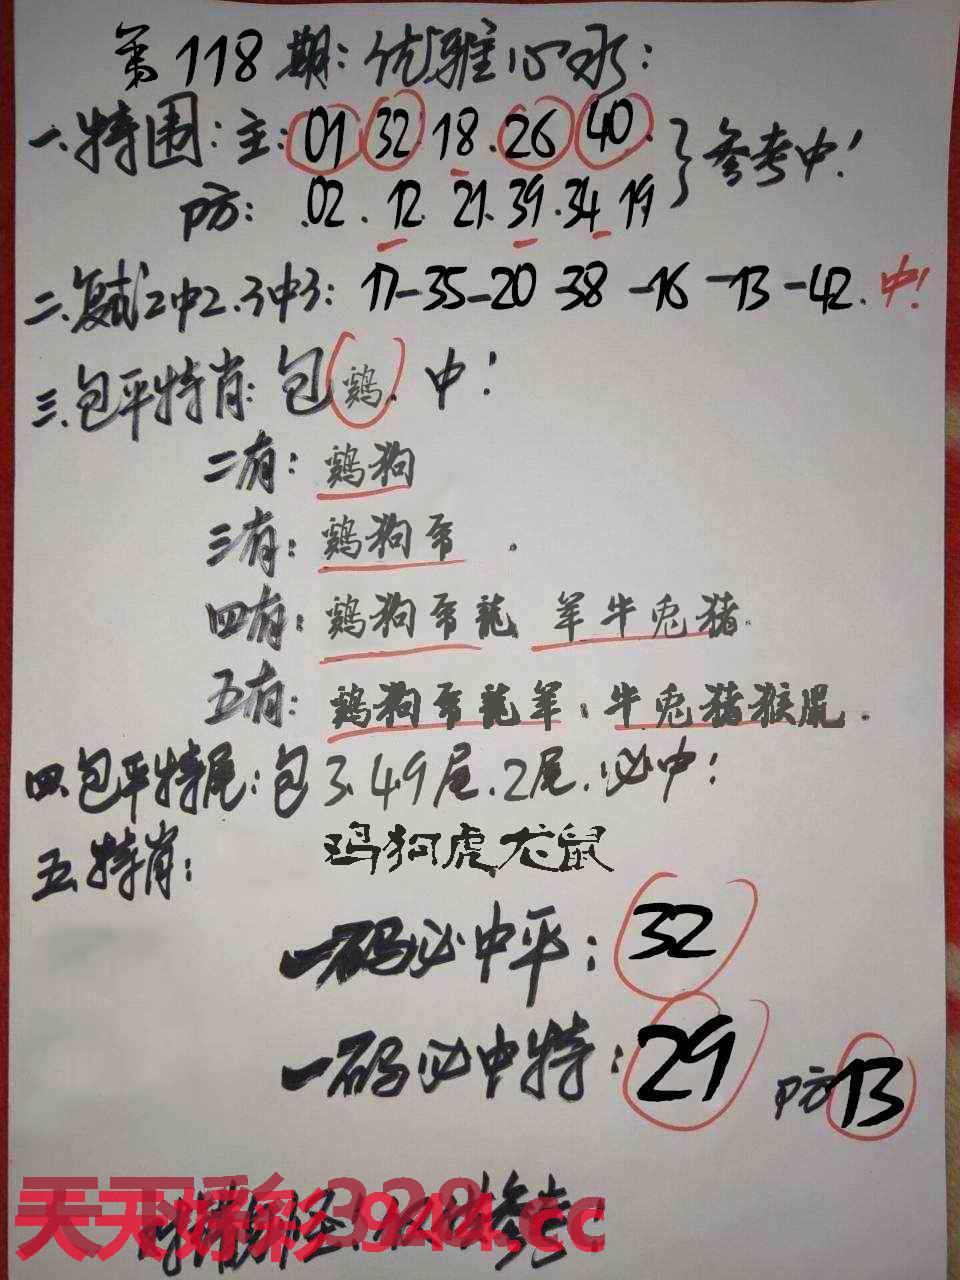 第118期:优雅心水:
一.特围:主:01 32 18.26 40.
参考中!
防: .02.12 21.39.34 19
二.复式2中2.3中3: 17-35-20 38-16-13-42.中!
三.包平特肖:包鸡.中!
二有:鸡狗
三有:鸡狗帍.
四有:鸡狗帍龍 羊牛兎猪.
五有:鸡狗帍龍羊:牛兎猪猴鼠.
四.包平特尾:包3.4.9尾.2尾.必中:
五.特肖: 鸡狗虎龙鼠
一码必中平:32
一码必中特:29 防13
天天好彩 944.cc
参考